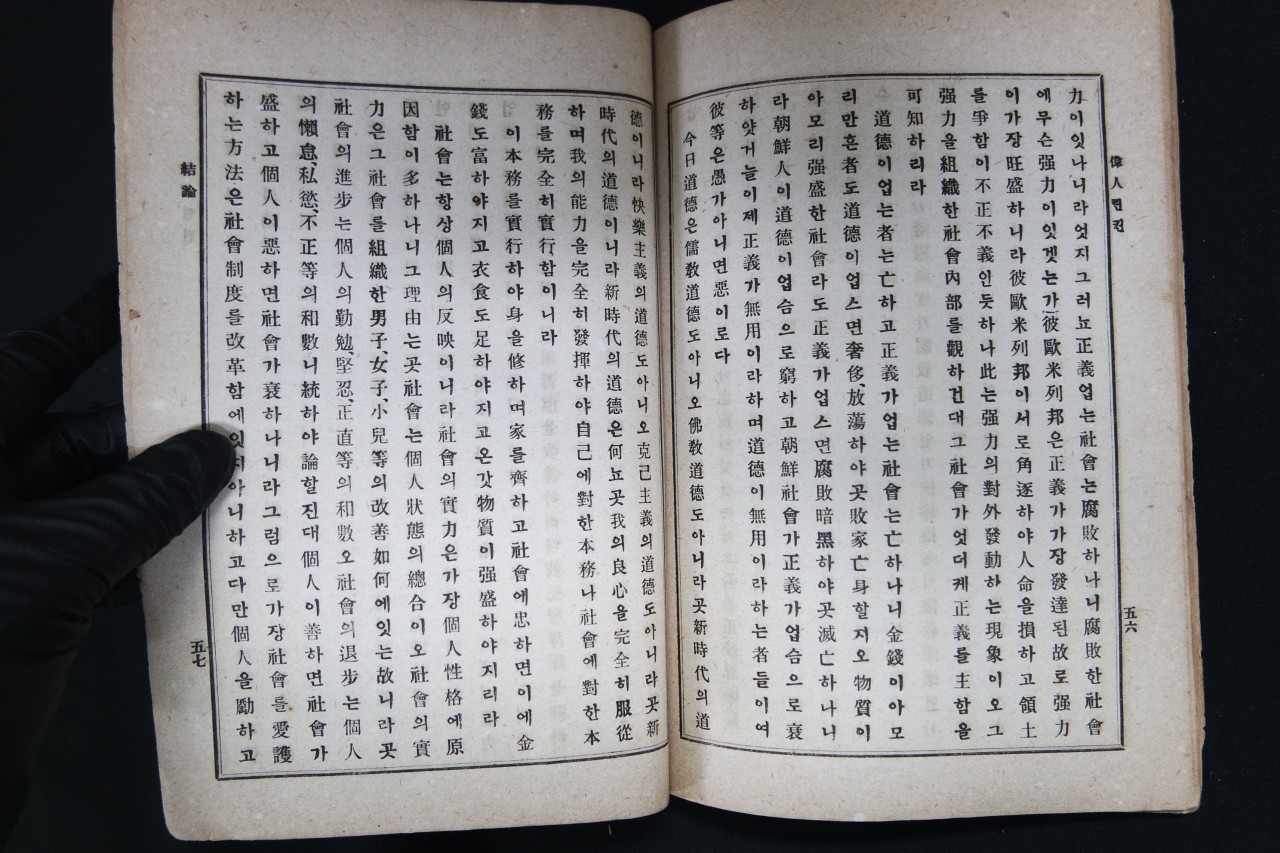 偉人린컨
五六
力이잇나니라엇지그러뇨正義업는社會는腐敗하나니腐敗한社會
에무슨强力이잇겟는가彼歐米列邦은正義가가장發達된故로强力
이가장旺盛하니라彼歐米列邦이서로角逐하야人命을損하고領土
를爭함이不正不義인듯하나此는强力의對外發動하는現象이오그
强力을組織한社會內部를觀하건대그社會가엇더케正義를主함을
可知하리라
道德이업는者는亡하고正義가업는社會는亡하나니金錢이아모
리만흔者도道德이업스면奢侈、放蕩하야곳敗家亡身할지오物質이
아모리强盛한社會라도正義가업스면腐敗暗黑하야곳滅亡하나니
라朝鮮人이道德이업슴으로窮하고朝鮮社會가正義가업슴으로衰
하얏거늘이제正義가無用이라하며道德이無用이라하는者들이여
彼等은愚가아니면惡이로다
今日道德은儒敎道德도아니오佛敎道德도아니라곳新時代의道
德이니라快樂主義의道德도아니오克己主義의道德도아니라곳新
時代의道德이니라新時代의道德은何뇨곳我의良心을完全히服從
하며我의能力을完全히發揮하야自己에對한本務나社會에對한本
務를完全히實行함이니라
이本務를實行하야身을修하며家를齊하고社會에忠하면이에金
錢도富하야지고衣食도足하야지고온갓物質이强盛하야지리라
社會는항상個人의反映이니라社會의實力은가장個人性格에原
因함이多하나니그理由는곳社會는個人狀態의總合이오社會의實
力은그社會를組織한男子、女子、小兒等의改善如何에잇는故니라곳
社會의進步는個人의勤勉、堅忍、正直等의和數오社會의退步는個人
의懶怠、私慾、不正等의和數니統하야論할진대個人이善하면社會가
盛하고個人이惡하면社會가衰하나니라그럼으로가장社會를愛護
하는方法은社會制度를改革함에잇지아니하고다만個人을勵하고
結論
五七